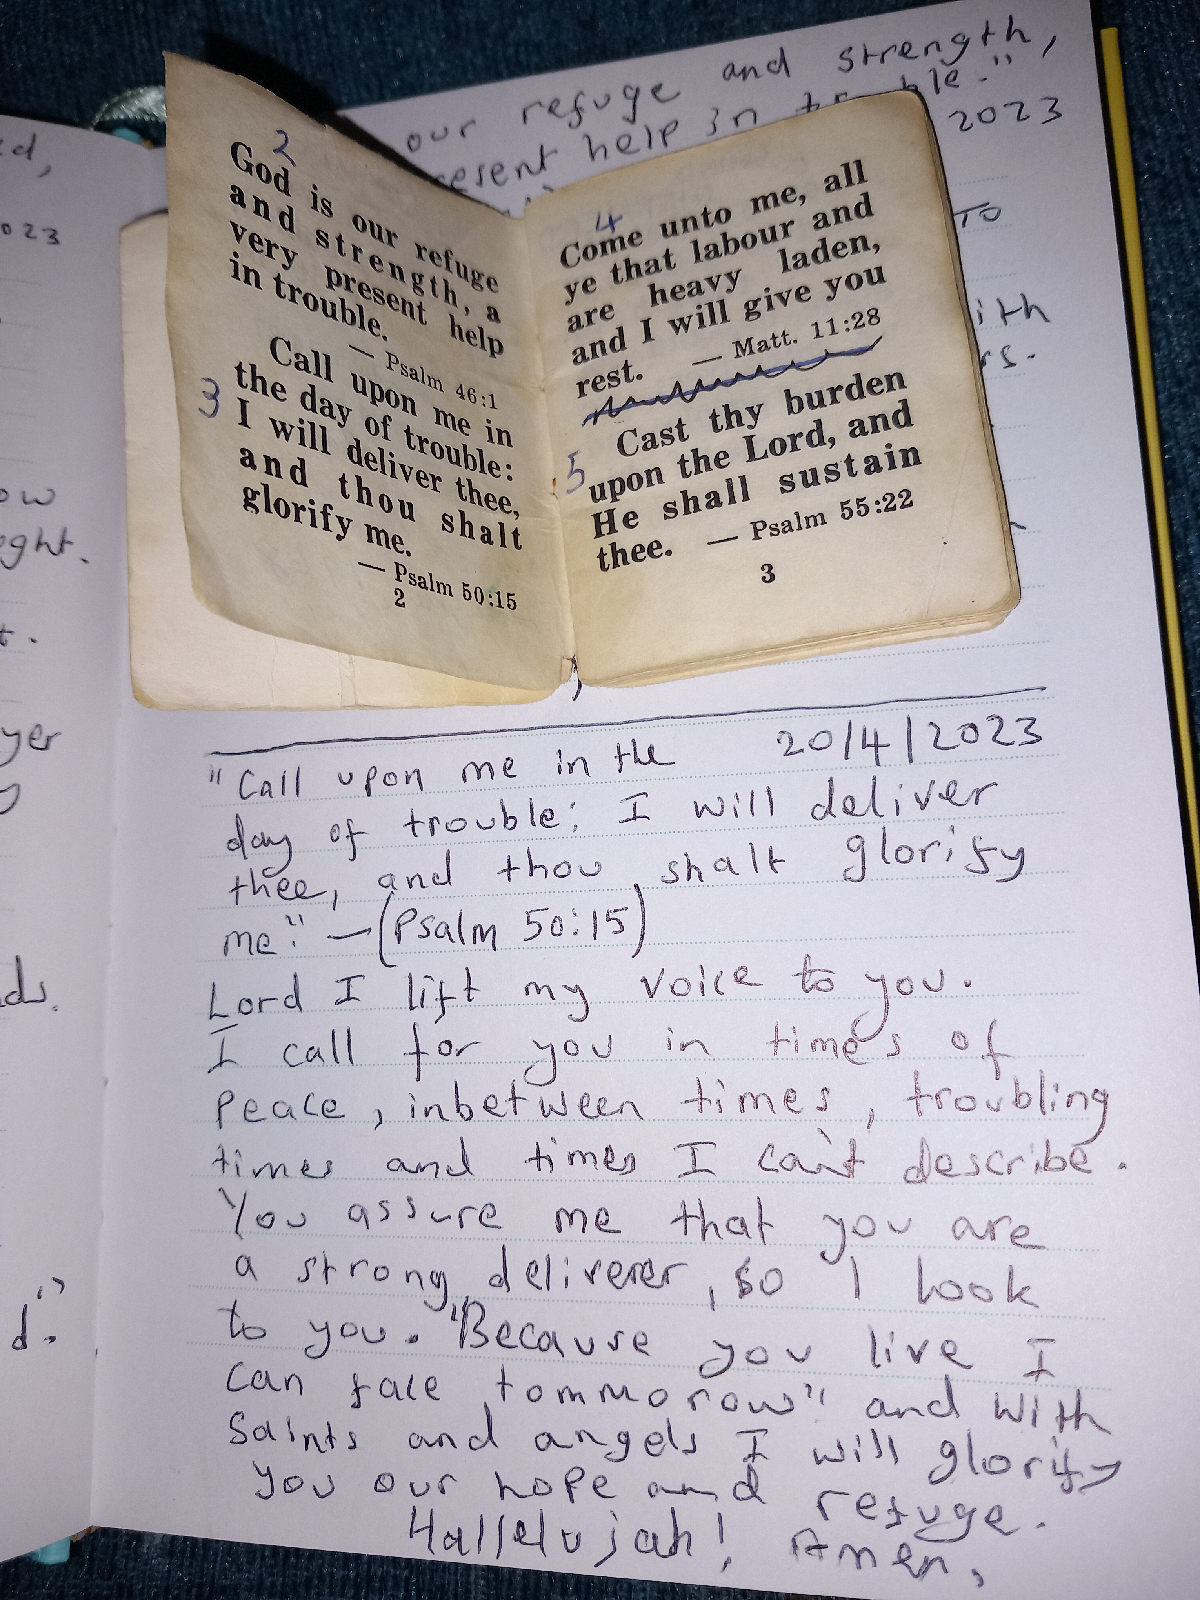 our refuge and strength,
present help in trouble."
2023
TO
ith
rs.
ed,
023
ow
ght.
t.
yer
ds.
d."
2
God is our refuge
and strength, a
very present help
in trouble.
— Psalm 46:1
3
Call upon me in
the day of trouble:
I will deliver thee,
and thou shalt
glorify me.
— Psalm 50:15
2
4
Come unto me, all
ye that labour and
are heavy laden,
and I will give you
rest. — Matt. 11:28
5
Cast thy burden
upon the Lord, and
He shall sustain
thee. — Psalm 55:22
3
"Call upon me in the 20/4/2023
day of trouble: I will deliver
thee, and thou shalt glorify
me." — (Psalm 50:15)
Lord I lift my voice to you.
I call for you in times of
peace, inbetween times, troubling
times and times I can't describe.
You assure me that you are
a strong deliverer, so I look
to you. "Because you live I
can face tommorow" and with
saints and angels I will glorify
you our hope and refuge.
Hallelujah! Amen,